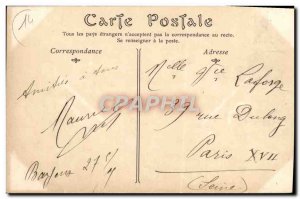 16
Carte Postale
Tous les pays étrangers n'acceptent pas la correspondance au recto.
Se renseigner à la poste.
Correspondance
Adresse
Amitiés à tous
Maurice
27
Melle
Laforge
89 rue Dulong
Paris XVII
(Seine)
CARTOLIS